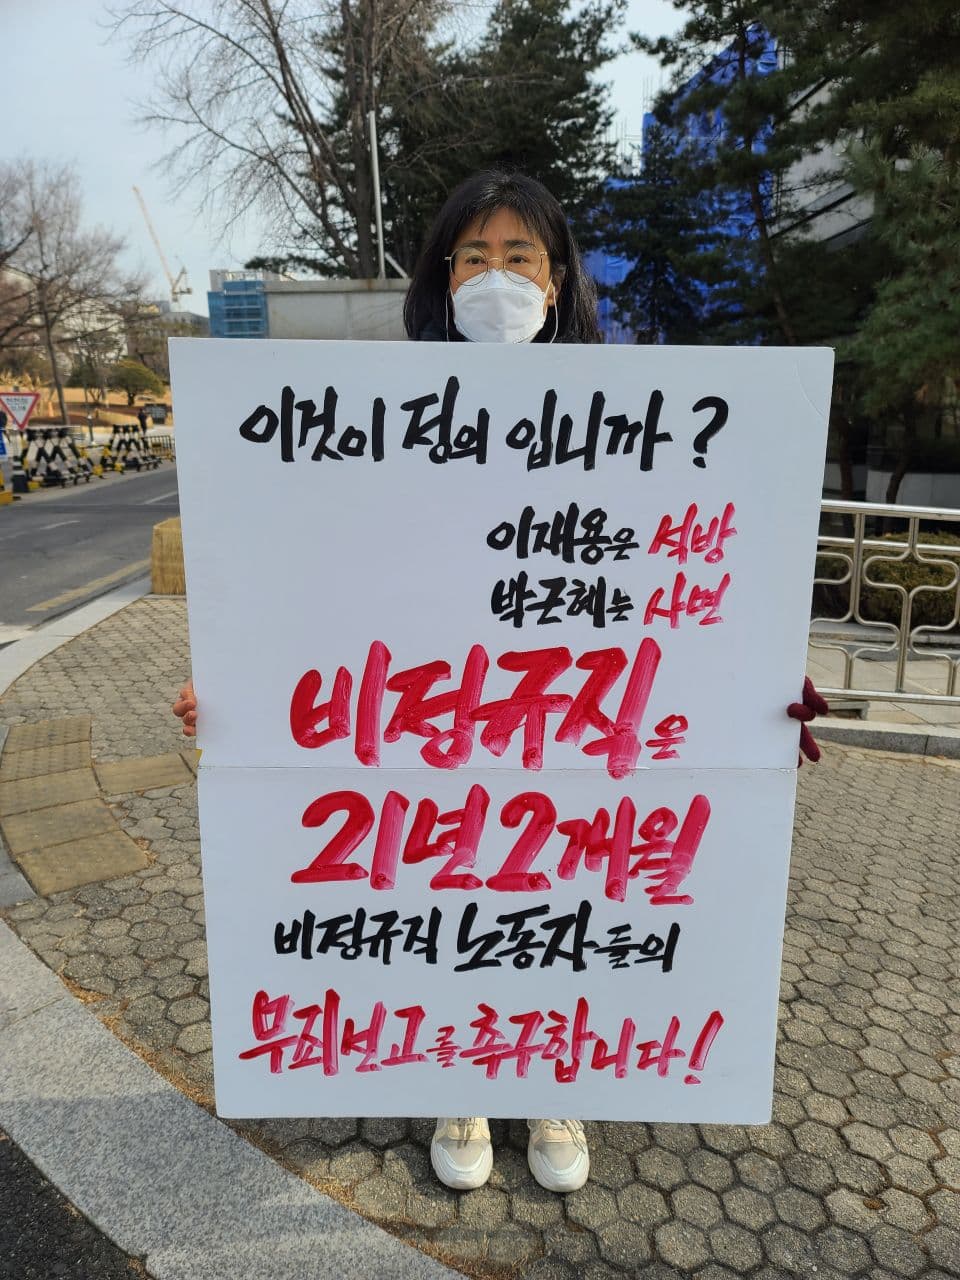 이것이 정의 입니까?
이재용은 석방
박근혜는 사면
비정규직은
21년2개월
비정규직 노동자들의
무죄선고를 촉구합니다!